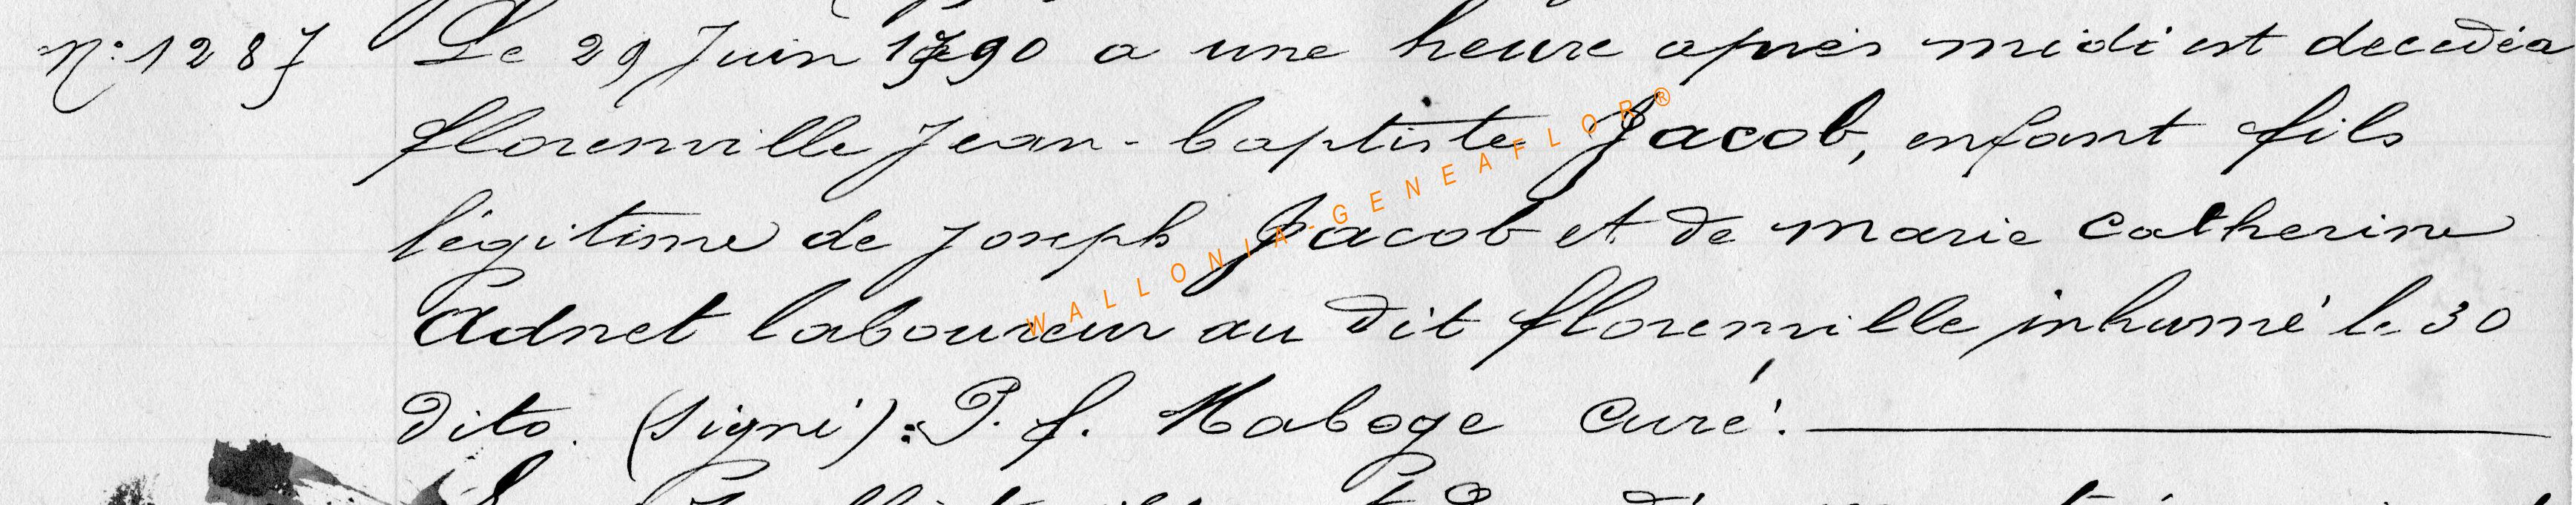 N° 1287 Le 29 Juin 1790 a une heure apres midi est decedé a
florenville Jean-baptiste Jacob, enfant fils
légitime de Joseph Jacob et de marie Catherine
Adnet laboureur au dit florenville inhumé le 30
dito. (Signé): P. f. Maboge Curé.
WALLONIA-GENEAFLOR®